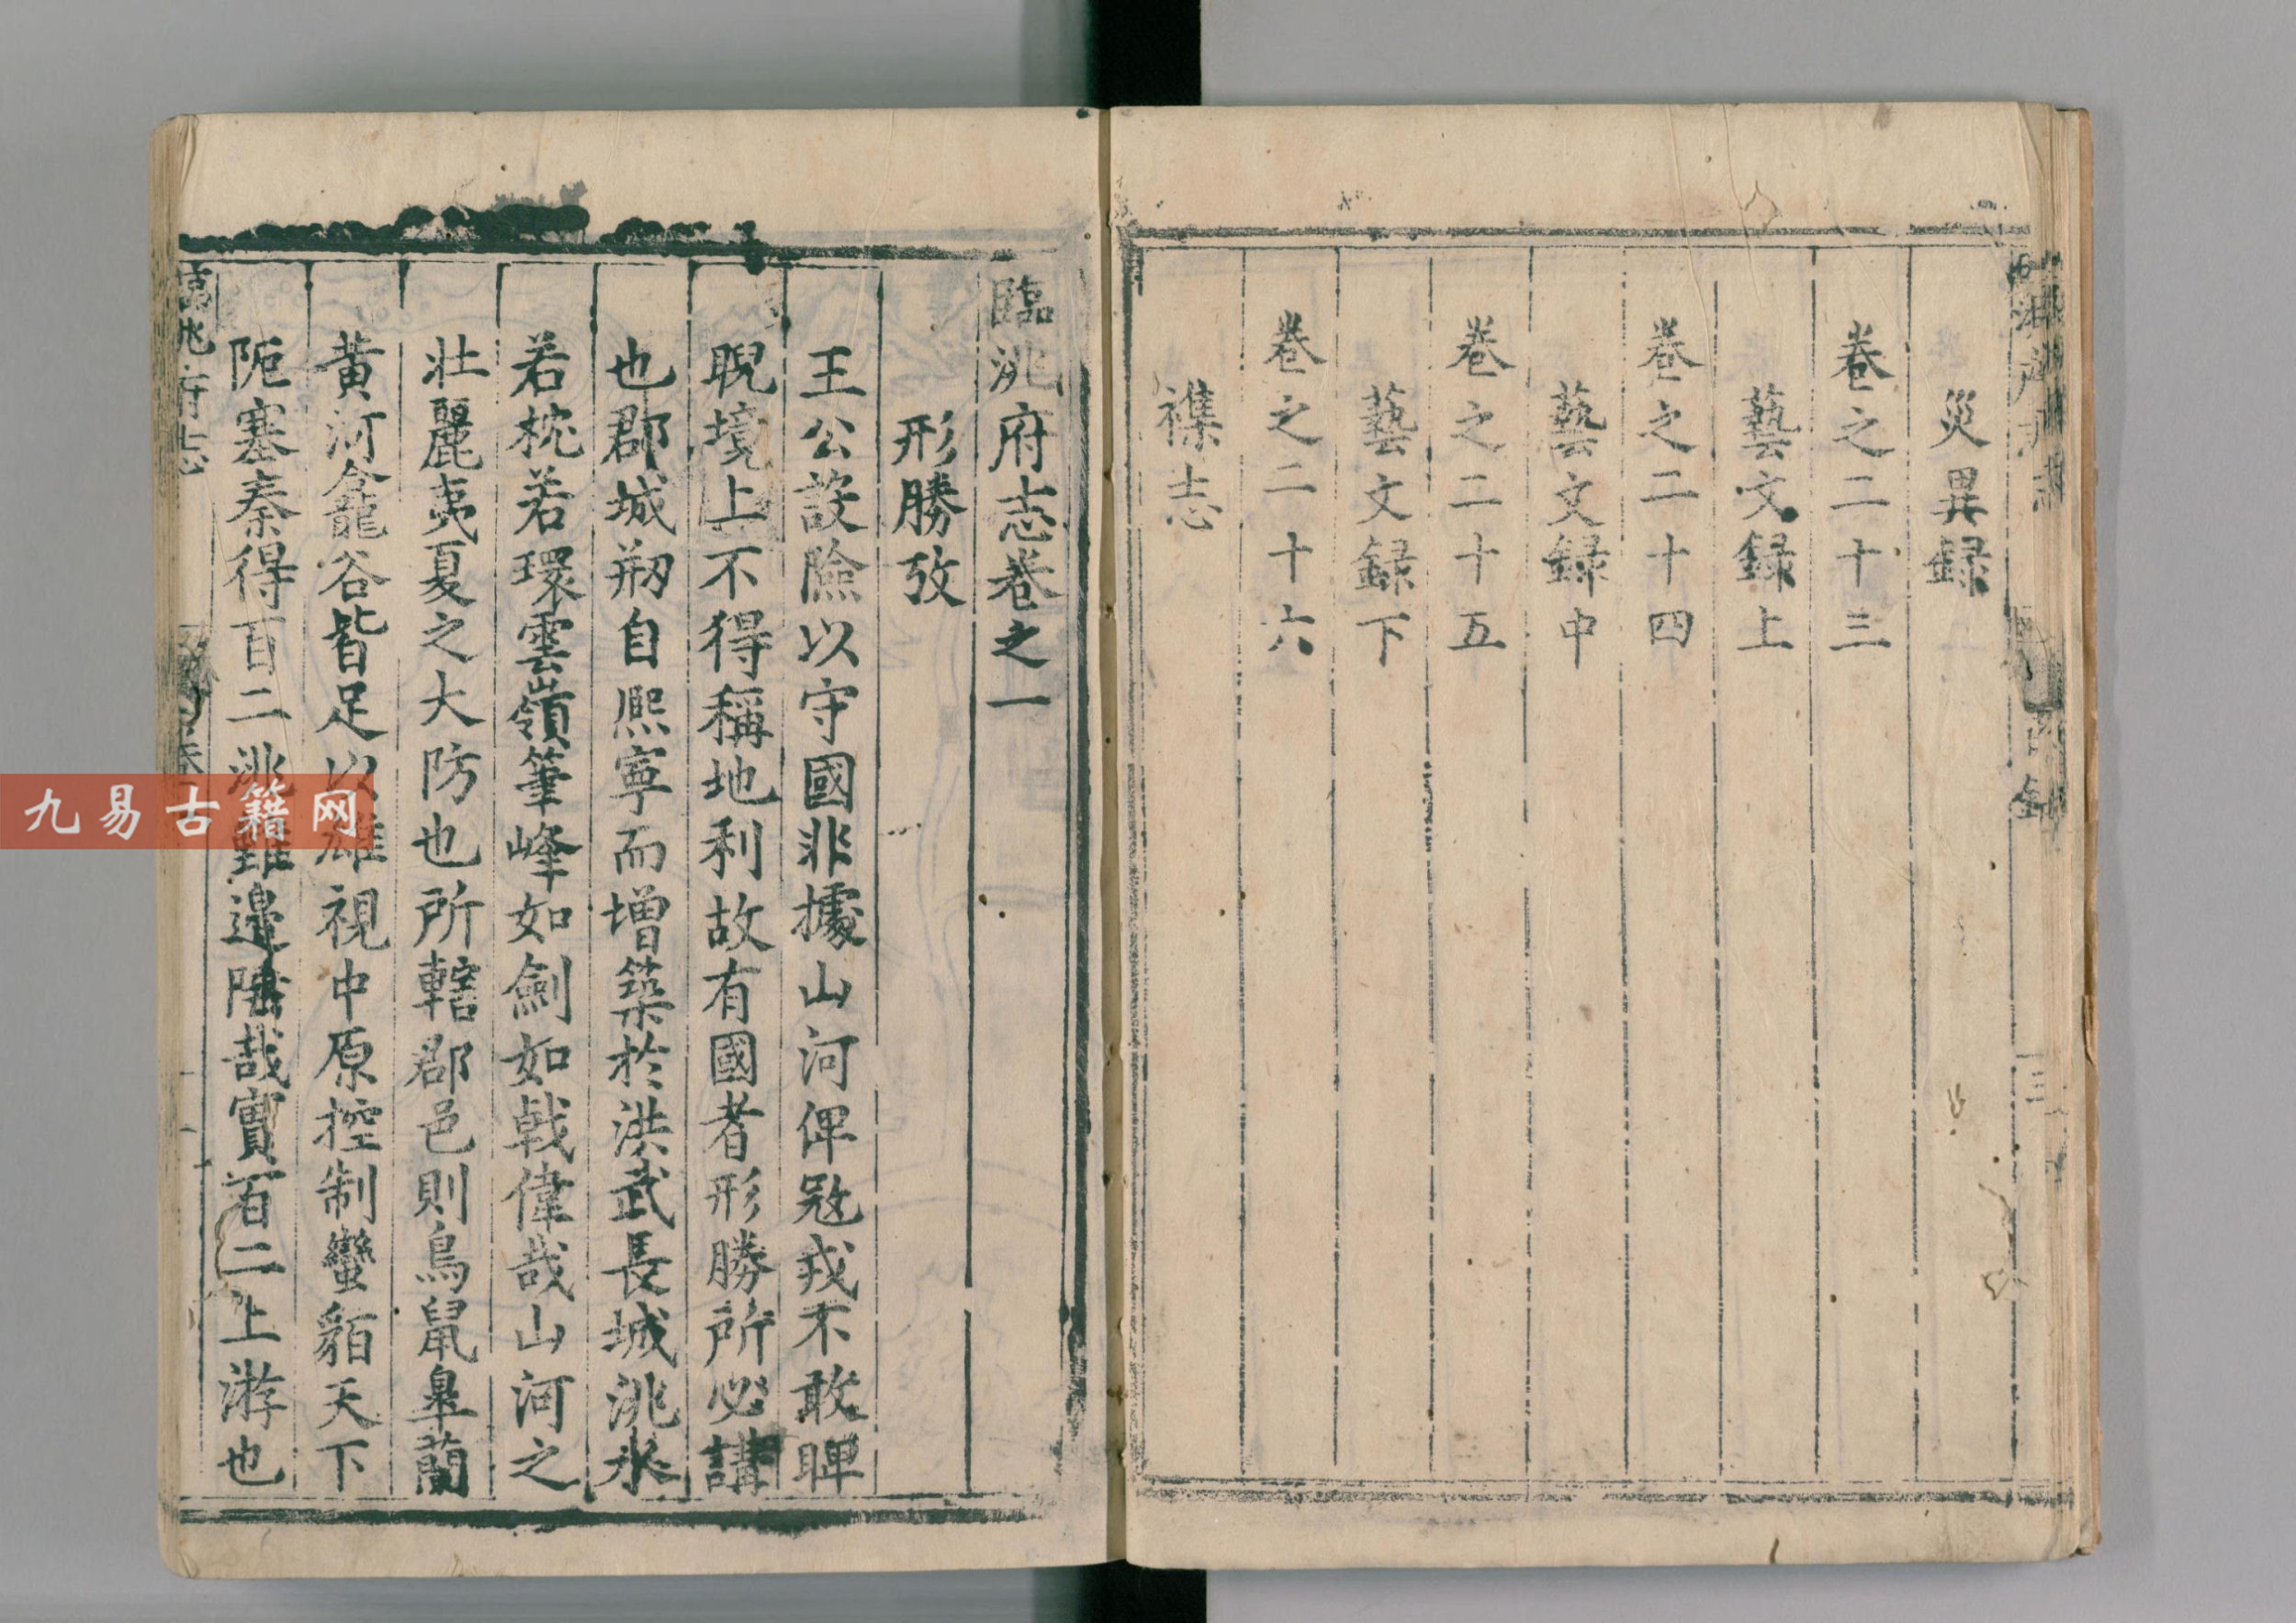 災異録
卷之二十三
藝文録上
卷之二十四
藝文録中
卷之二十五
藝文録下
卷之二十六
襍志
臨洮府志卷之一
形勝攷
王公設險以守國非據山河俾寇戎不敢睥
睨境上不得稱地利故有國者形勝所必講
也郡城剏自熈寧而增築於洪武長城洮水
若枕若環雲嶺筆峰如劍如戟偉哉山河之
壯麗夷夏之大防也所轄郡邑則鳥鼠臯蘭
黄河龕谷皆足以雄視中原控制蠻貊天下
阨塞秦得百二洮雖邊陲哉實百二上游也
九易古籍网